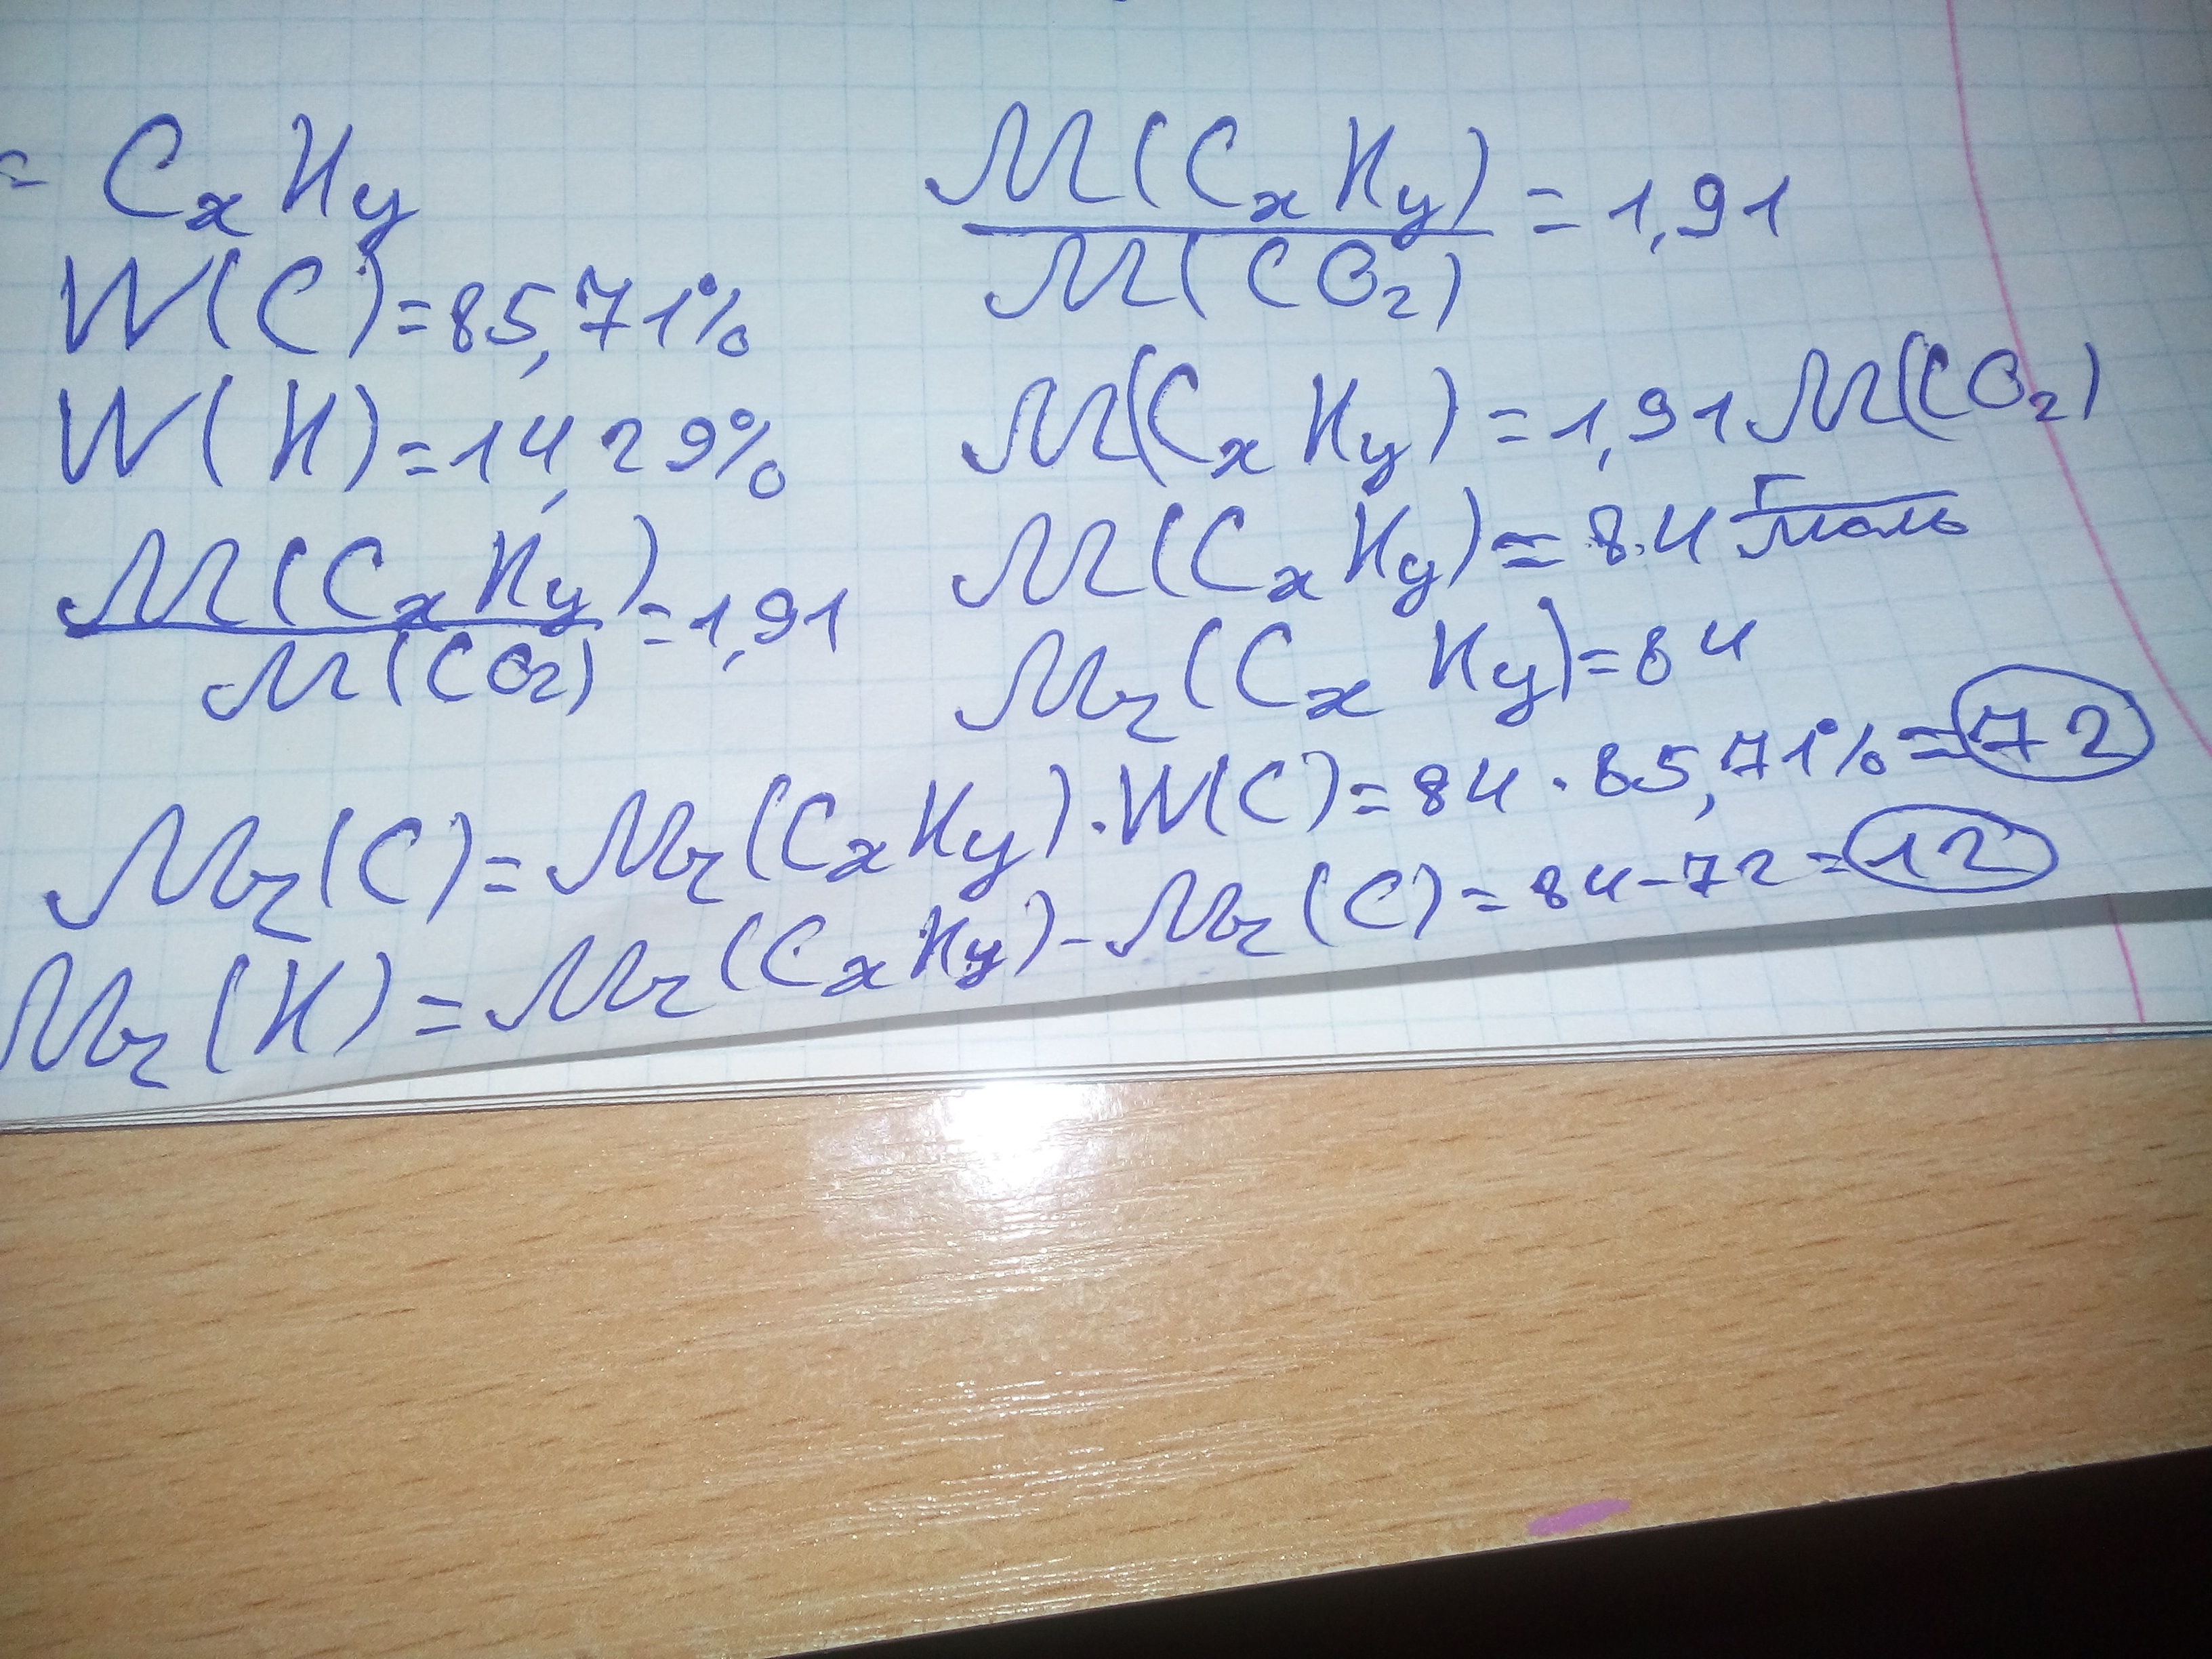 = CxHy
W(C)=85,71%
W(H)=14,29%
M(CxHy)
M(CO2)
=1,91
M(CxHy)
M(CO2)
=1,91
M(CxHy)=1,91M(CO2)
M(CxHy)=84 г/моль
Mr(CxHy)=84
Mr(C)=Mr(CxHy)·W(C)=84·85,71%=72
Mr(H)=Mr(CxHy)-Mr(C)=84-72=12